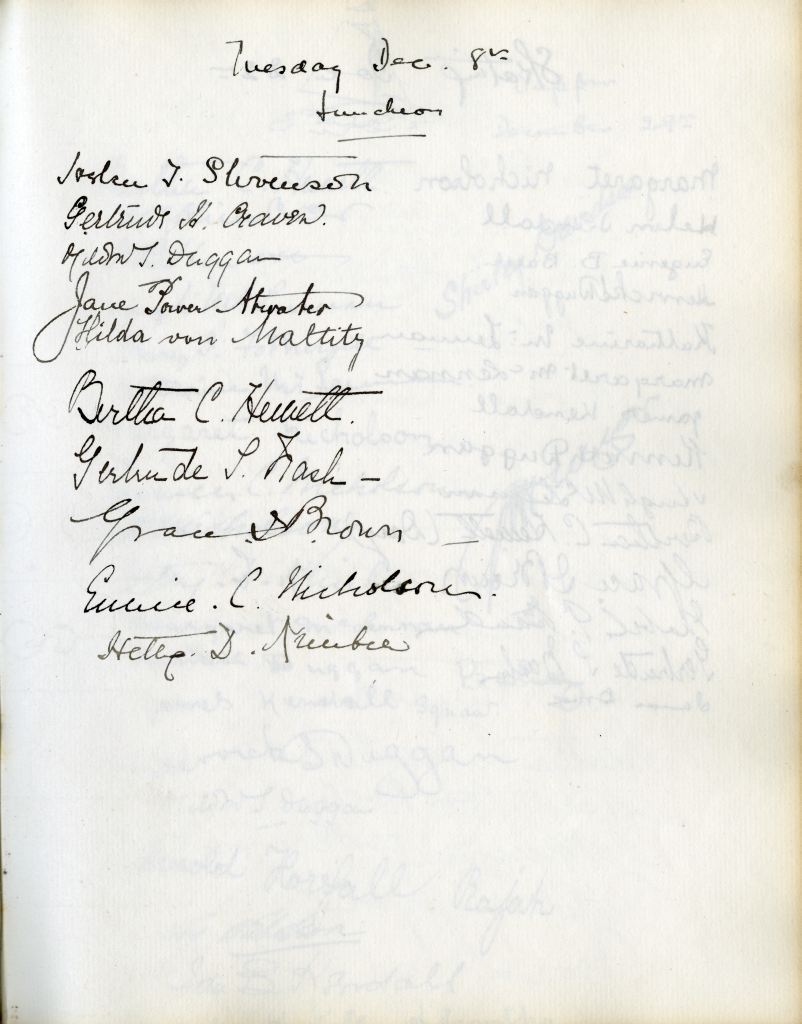 Tuesday Dec. 8th
Luncheon
Helen T. Stevenson
Gertrude H. Craven.
Mildred S. Duggan
Jane Power Atwater
Hilda von Maltity
Bertha C. Hewett.
Gertrude S. Nash -
Grace S Brown -
Eunice. C. Nicholson.
D.